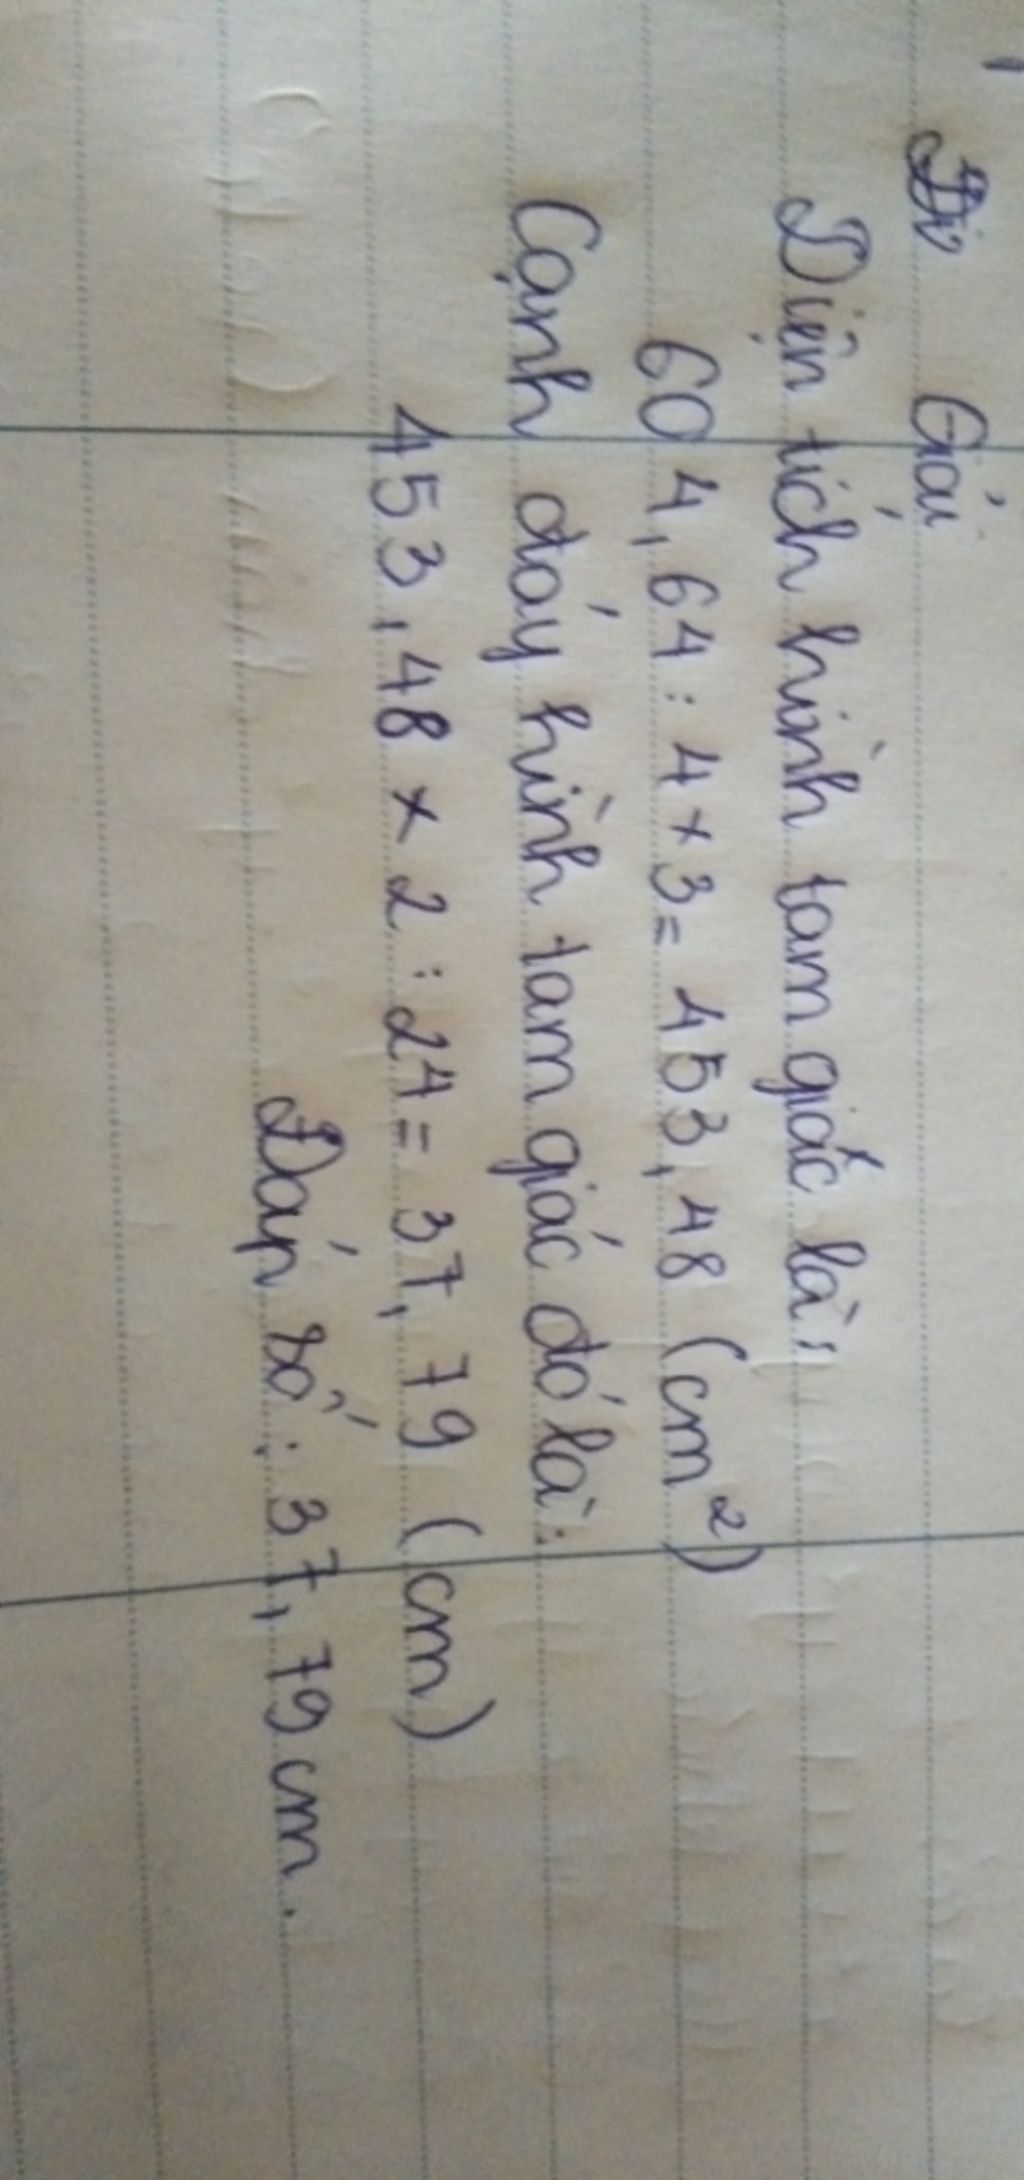 Giải
Diện tích hình tam giác là:
604,64 : 4 x 3 = 453,48 (cm²)
Cạnh đáy hình tam giác đó là:
453,48 x 2 : 24 = 37,79 (cm)
Đáp số : 37,79 cm.